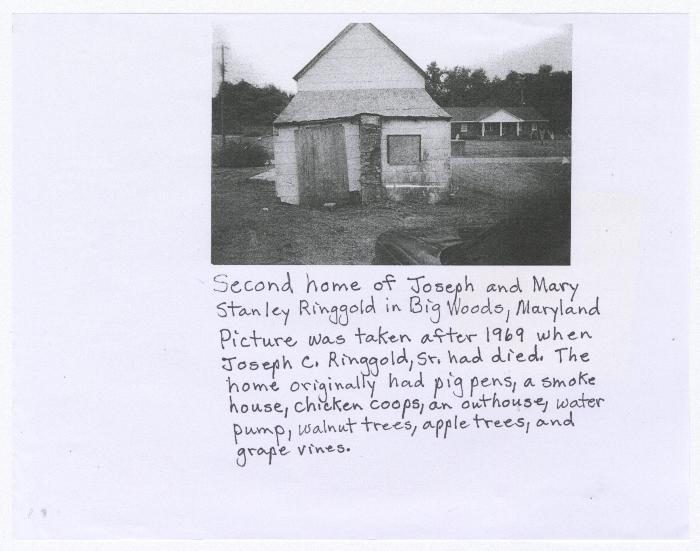 Second home of Joseph and Mary
Stanley Ringgold in Big Woods, Maryland
Picture was taken after 1969 when
Joseph C. Ringgold, Sr. had died. The
home originally had pig pens, a smoke
house, chicken coops, an outhouse, water
pump, walnut trees, apple trees, and
grape vines.